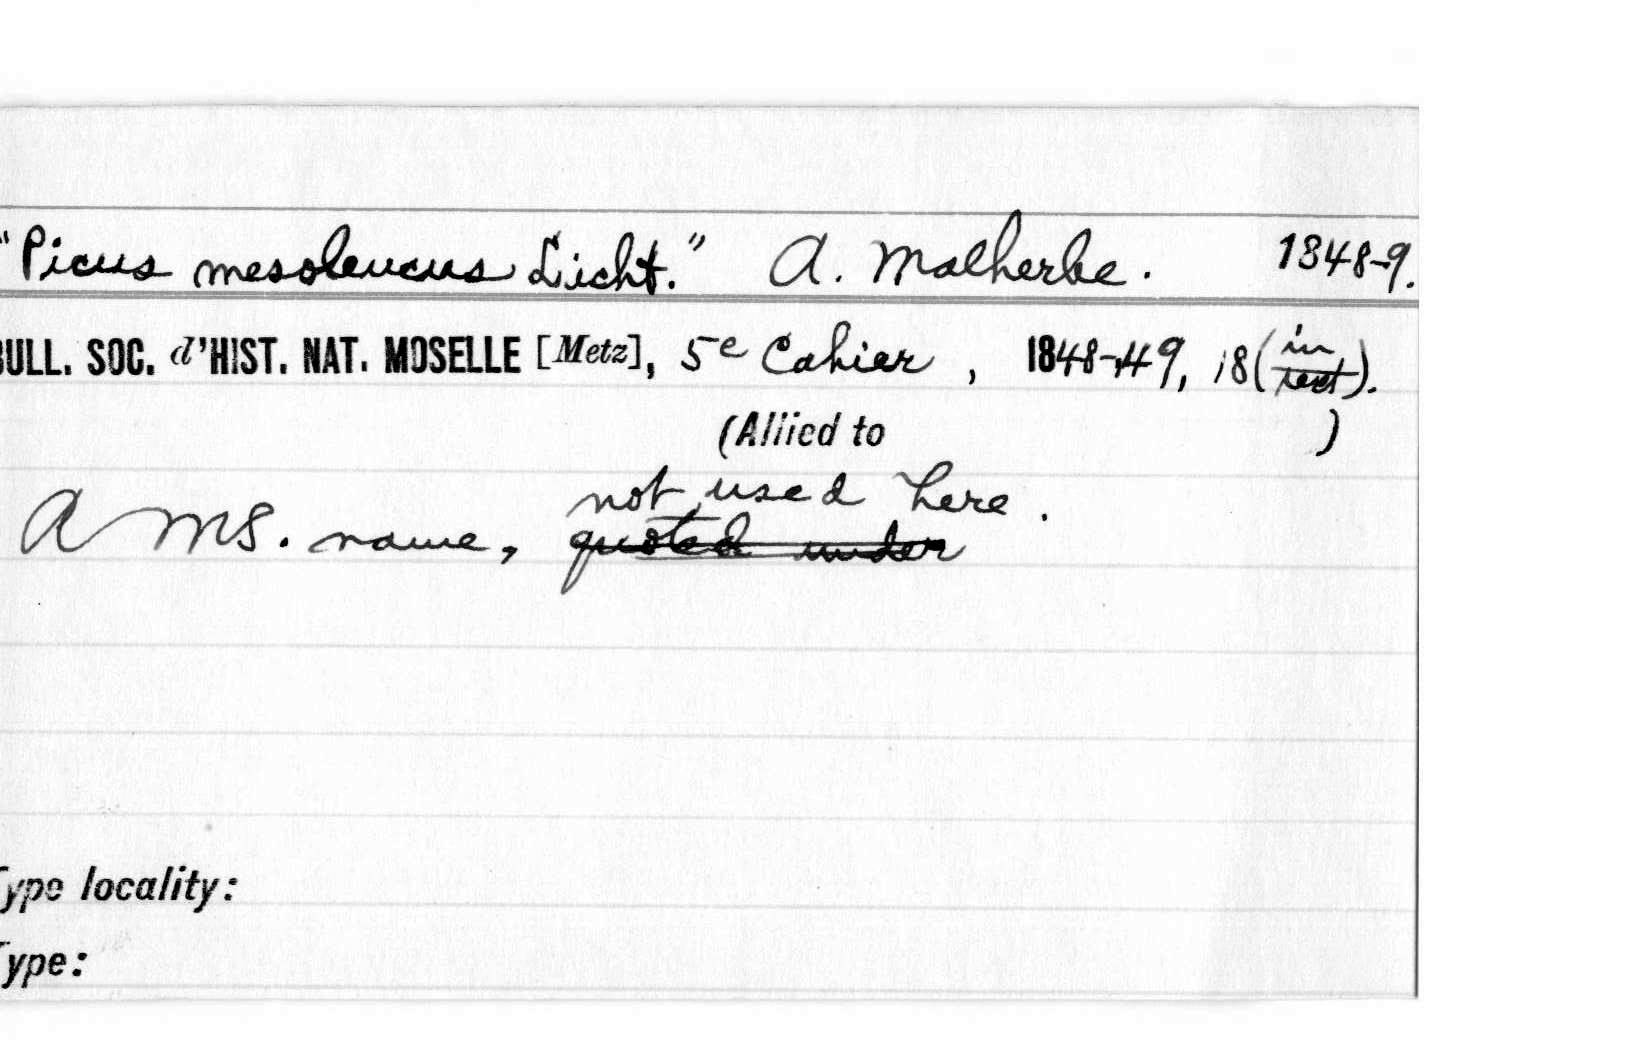 "Picus mesoleucus Licht." A. Malherbe. 1848-9.
BULL. SOC. d'HIST. NAT. MOSELLE [Metz], 5e Cahier, 1848-49, 18 (in text).
(Allied to )
not used here.
A MS. name, quoted under
Type locality:
Type: